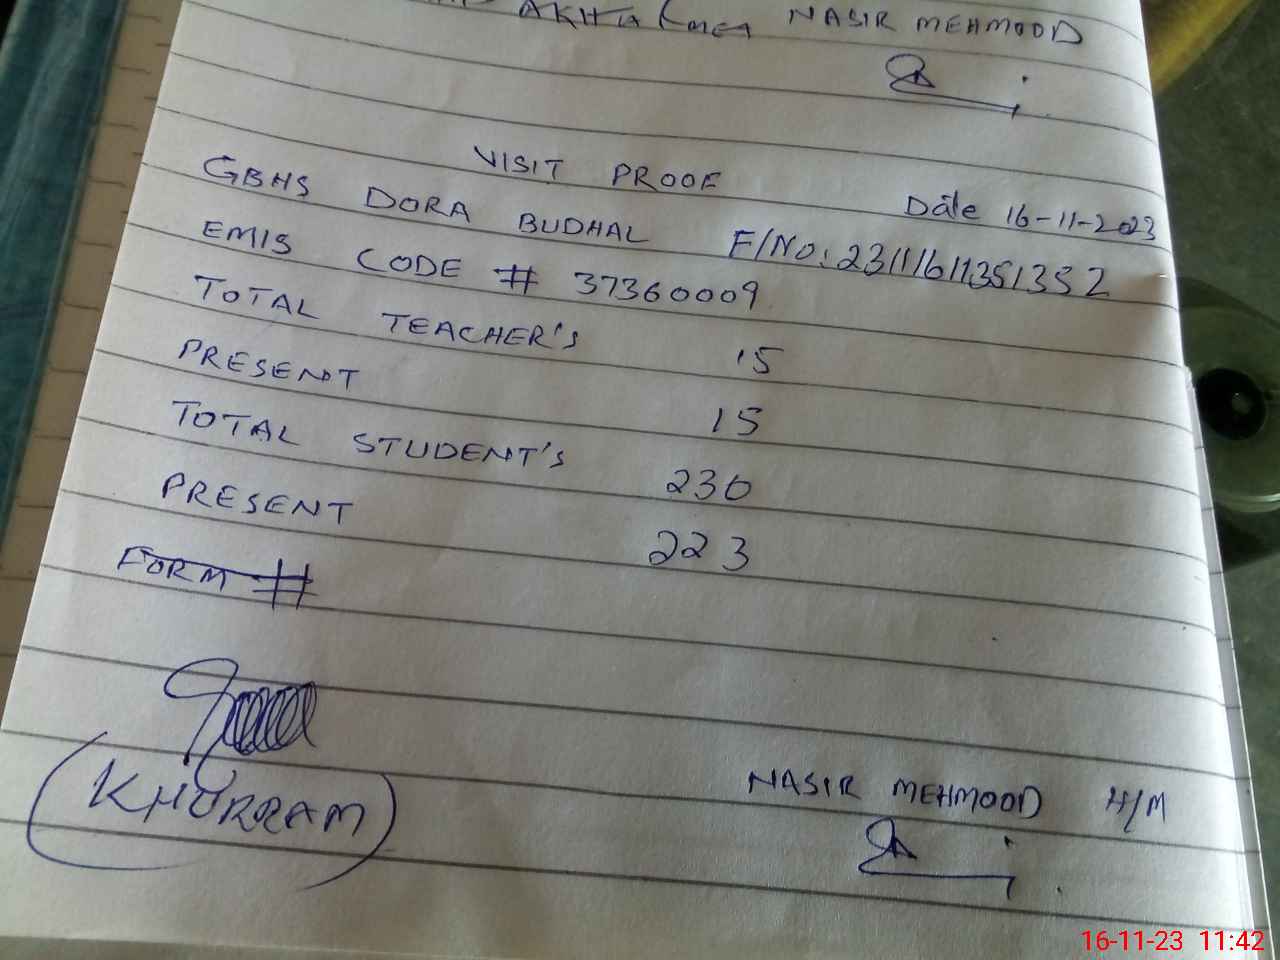 AKHTAR NASIR MEHMOOD
VISIT PROOF
Date 16-11-2023
GBHS DORA BUDHAL F/NO: 23111611351352
EMIS CODE # 37360009
TOTAL TEACHER'S 15
PRESENT 15
TOTAL STUDENT'S 230
PRESENT 223
FORM #
(KHURRAM)
NASIR MEHMOOD H/M
16-11-23 11:42